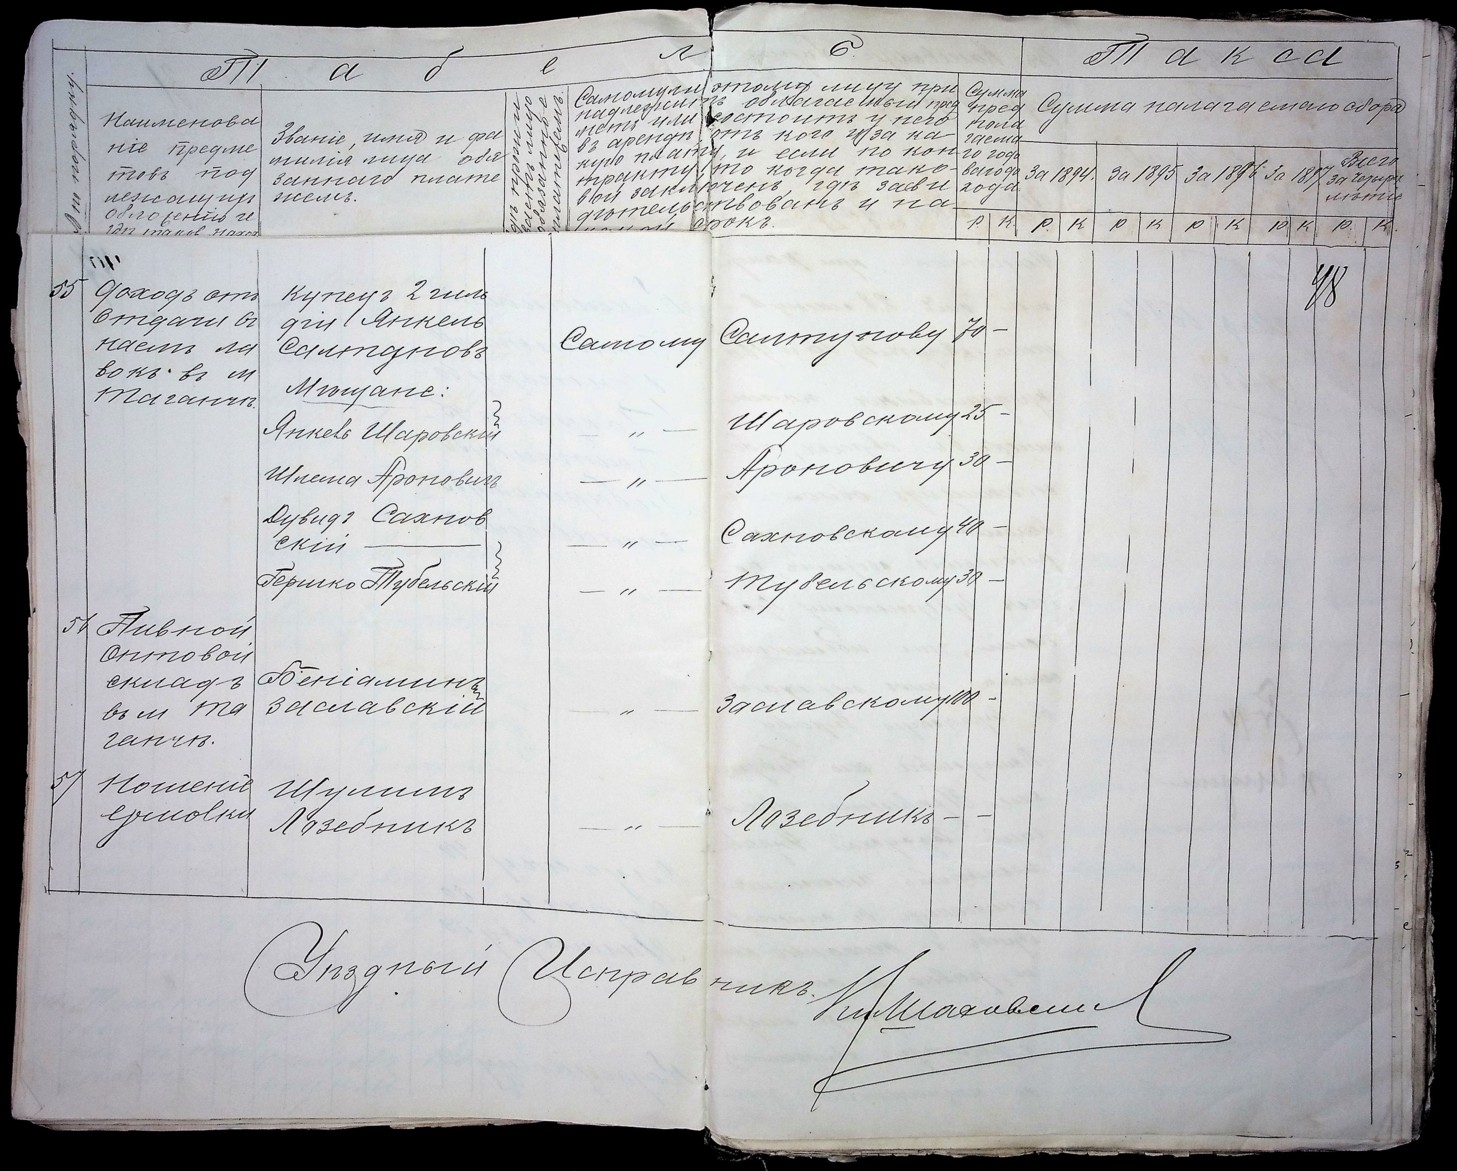 Табель
Такса
№ по порядку.
Наименова
ніе предме
товъ под
лежащихъ
обложенію и
гдѣ таков. наход
Званіе, имя и фа
милія лица обя
заннаго плате
жемъ.
Самому ли этому лицу при
надлежитъ облагаемый пред
метъ или состоитъ у него
въ арендѣ, отъ кого и за ка
кую плату, и если по кон
тракту, то когда тако
вой заключенъ, гдѣ засви
дѣтельствованъ и на
какой срокъ.
Сумма
пред
пола
гаема
го годо
ваго до
хода
Сумма налагаемаго сбора
За 1894.
За 1895
За 1896
За 1897
Всего
за четыре
лѣтіе
р. к. р. к. р. к. р. к. р. к. р. к.
48
55 Доходъ отъ
отдачи въ
наемъ ла
вокъ въ м
Таганчѣ.
Купецъ 2 гиль
діи Янкель
Салтановъ
Самому Салтунову 70 –
Мѣщане:
Янкель Шаровскій — „ — Шаровскому 25 –
Шлема Ароновичъ — „ — Ароновичу 30 –
Дувидъ Сахнов
скій — „ — Сахновскому 40 –
Гершко Тубельскій — „ — Тубельскому 30 –
56 Пивной
оптовой
складъ
въ м Та
ганчѣ.
Беніаминъ
Заславскій — „ — Заславскому 100 –
57 Ношеніе
ермолки
Шулимъ
Лазебникъ — „ — Лазебникъ – –
Уѣздный Исправникъ.
Кн. Шаховской